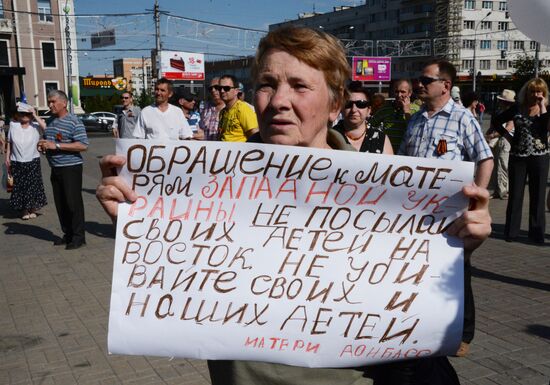 ОБРАЩЕНИЕ К МАТЕ-
РЯМ ЗАПАДНОЙ УК-
РАИНЫ НЕ ПОСЫЛАЙ
СВОИХ ДЕТЕЙ НА
ВОСТОК, НЕ УБИ-
ВАЙТЕ СВОИХ И
НАШИХ ДЕТЕЙ.
МАТЕРИ ДОНБАСС